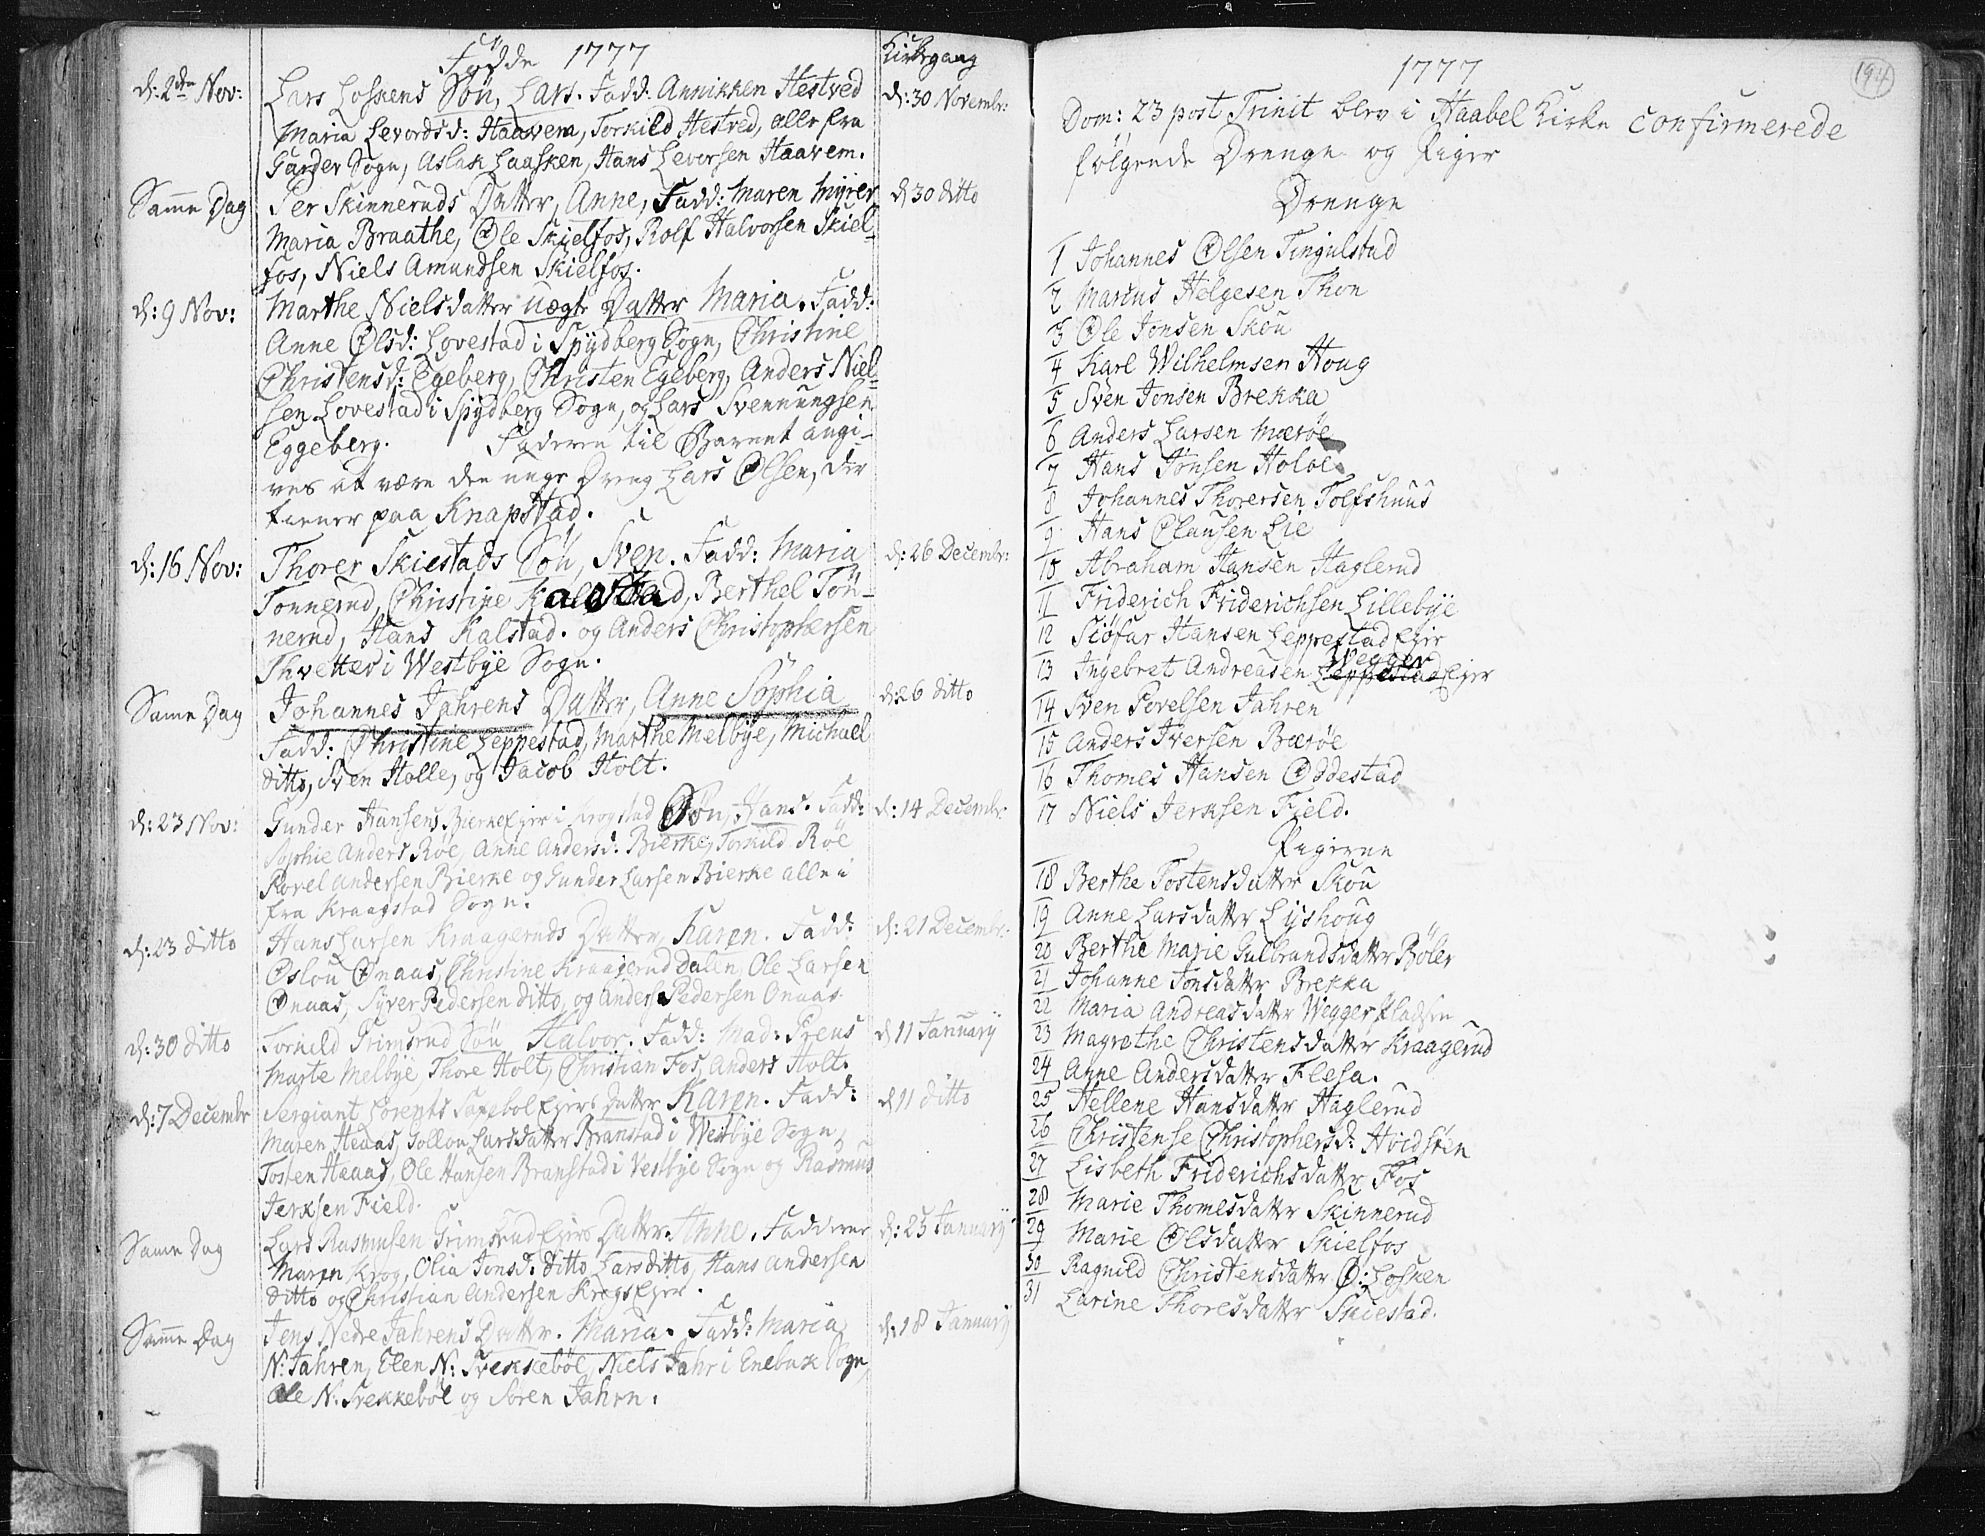 Fødde 1777
Kirkegang
d: 2den Nov:
Lars Loskens Søn, Lars. Fadd: Annikken Hestved
d: 30 Novembr:
Maria Levordsd: Haavem, Torkild Hestved, alle fra
Garder Sogn, Aslak Laasken, Hans Levorsen Haavem.
Samme Dag
Per Skinneruds Datter, Anne, Fadd: Maren Myrer
d: 30 ditto
Maria Braathe, Ole Skielfos, Rolf Halvorsen Skiel-
fos, Niels Amundsen Skielfos.
d: 9 Nov:
Marthe Nielsdatter uægte Datter Maria. Fadd:
Anne Olsd: Lovestad i Spydberg Sogn, Christine
Christensd: Egeberg, Christen Egeberg, Anders Niel-
sen Lovestad i Spydberg Sogn, og Lars Svennungsen
Eggeberg. Faderen til Barnet angi-
ves at være den unge Dreng Lars Olsen, der
tiener paa Knapstad.
d: 16 Nov:
Thorer Skiestads Søn, Sven. Fadd: Maria
d: 26 Decembr:
Tonnerud, Christine Kalstad, Berthel Tøn-
nerud, Hans Kalstad. og Anders Christophersen
Thvetter i Westbye Sogn.
Same Dag
Johannes Jahrens Datter, Anne Sophia
d: 26 ditto
Fadd: Christine Leppestad, Marthe Melbÿe, Michael
ditto, Sven Holle, og Jacob Holt.
d: 23 Nov:
Gunder Hansens BierkeEjer i Krogstad Søn, Hans. Fadd:
d: 14 Decembr:
Sophie Anders Røe, Anne Andersd: Bierke, Torkild Røe
Povel Andersen Bierke og Gunder Larsen Bierke alle i
fra Kraagstad Sogn.
d: 23 ditto
Hans Larsen Kraageruds Datter, Karen. Fadd:
d: 21 Decembr:
Oslou Ønaas, Christine Kraagerud Dalen, Ole Larsen
Ønaas, Syver Pedersen ditto, og Anders Pedersen Onaas.
d: 30 ditto
Torkild Grimsrud Søn Halvor. Fadd: Mad: Preus
d 11 Januarÿ
Marte Melbÿe Thore Holt, Christian Fos, Anders Holt.
d: 7 Decembr
Sergiant Lorents SapebolEjers Datter Karen. Fadd:
d 11 ditto
Maren Heaas, Gollou Larsdatter Branstad i Westbÿe Sogn,
Tosten Haaas, Ole Hansen Branstad i Vestbÿe Sogn og Rasmus
Jerksen Field.
Same Dag
Lars Rasmusen GrimsrudEjers Datter. Anne. Fadderne
d: 25 Januarÿ
Maren Krog, Olia Jonsd: ditto Lars ditto, Hans Andersen
ditto og Christian Andersen KrogsEjer.
Samme Dag
Jens Nedre Jahrens Datter. Maria. Fadd: Maria
d: 18 Januarÿ
N: Jahren, Elen N: Svekkebøl, Niels Jahr i Enebak Sogn,
Ole N: Svekkebøl og Søren Jahrn.
194
1777
Dom: 23 post Trinit blev i Haabel Kirke Confirmerede
følgende Drenge og Piger
Drenge
1 Johannes Olsen Tingulstad
2 Marcus Helgesen Thon
3 Ole Jonsen Skou
4 Karl Wilhelmsen Houg
5 Sven Jonsen Brekka
6 Anders Larsen Mærøe
7 Hans Jonsen Holøe
8 Johannes Thorersen Tolfshuus
9 Hans Clausen Lie
10 Abraham Hansen Haglerud
11 Friderich Friderichsen Lillebÿe
12 Siøfar Hansen LeppestadEjer
Wegger
13 Ingebret Andreasen LeppestadEjer
14 Sven Povelsen Jahren
15 Anders Iversen Bærøe
16 Thomes Hansen Oddestad
17 Niels Jerksen Field.
Pigerne
18 Berthe Tostensdatter Skou
19 Anne Larsdatter Lÿshoug
20 Berthe Marie Gulbrandsdatter Bøler
21 Johanne Jonsdatter Brekka
22 Maria Andreasdatter Wegger Pladsen
23 Magrethe Christensdatter Kraagerud
24 Anne Andersdatter Flesa.
25 Hellene Hansdatter Haglerud
26 Christense Christophersd: Hvidsten
27 Lisbeth Friderichsdatter Fos
28 Marie Thomesdatter Skinnerud
29 Marie Olsdatter Skielfos
30 Ragnild Christensdatter Ø: Losken
31 Larine Thoresdatter Skiestad.